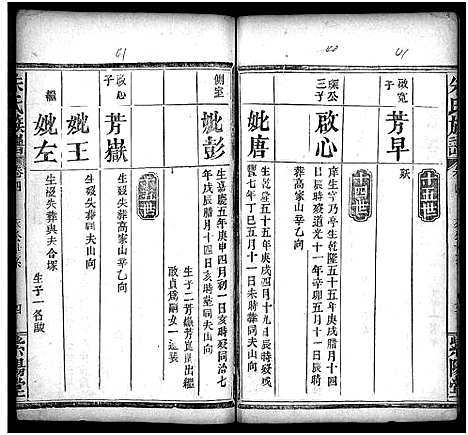 61
60
61
啟寬
子
芳早
殀
十五世
琛公
三子
啟心
庠生字乃亭生乾隆五十五年庚戌四月十一
日辰時歿道光十一年辛卯五月十一日辰時
葬高家山辛乙向
妣唐
生乾隆五十五年庚戌四月十九日辰時歿咸
豐七年丁巳五月十一日未時葬同夫山向
側室
妣彭
生嘉慶五年庚申四月初一日亥時歿同治七
年戊辰臘月十四日亥時葬同夫山向
生子二芳嶽芳崑崑出繼
啟貞爲嗣女一適
十五世
啟心
子
芳嶽
生歿失葬高家山辛乙向
妣王
生歿失葬同夫山向
繼
妣左
生歿失葬與夫合塚
生子一名
朱氏族譜
卷四
四
紫陽堂
朱氏族譜
紫陽堂